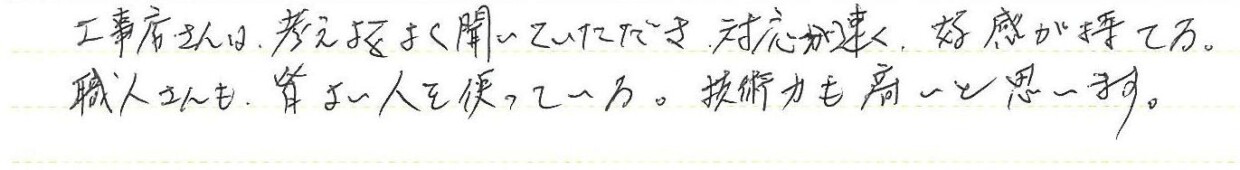 工事店さんは、考えをよく聞いていただき、対応が速く、好感が持てる。
職人さんも、皆よい人を使っている。技術力も高いと思います。